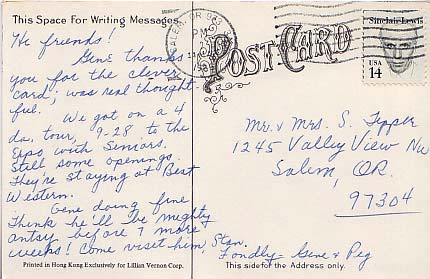 This Space For Writing Messages
Hi friends!
Gene thanks
you for the clever
card; was real thought-
ful.
We got on a 4
da. tour, 9-28 to the
Expo with Seniors.
Still some openings.
They're staying at Best
Western.
Gene doing fine
Think he'll be mighty
antsy before 7 more
weeks! Come visit him, Stan.
Fondly- Gene & Peg
Printed in Hong Kong Exclusively for Lillian Vernon Corp.
SALEM, OR 973
PM
POST CARD
Sinclair Lewis
USA
14
Mr. & Mrs. S. Tepper
1245 Valley View Nw
Salem, OR.
97304
This side for the address only.